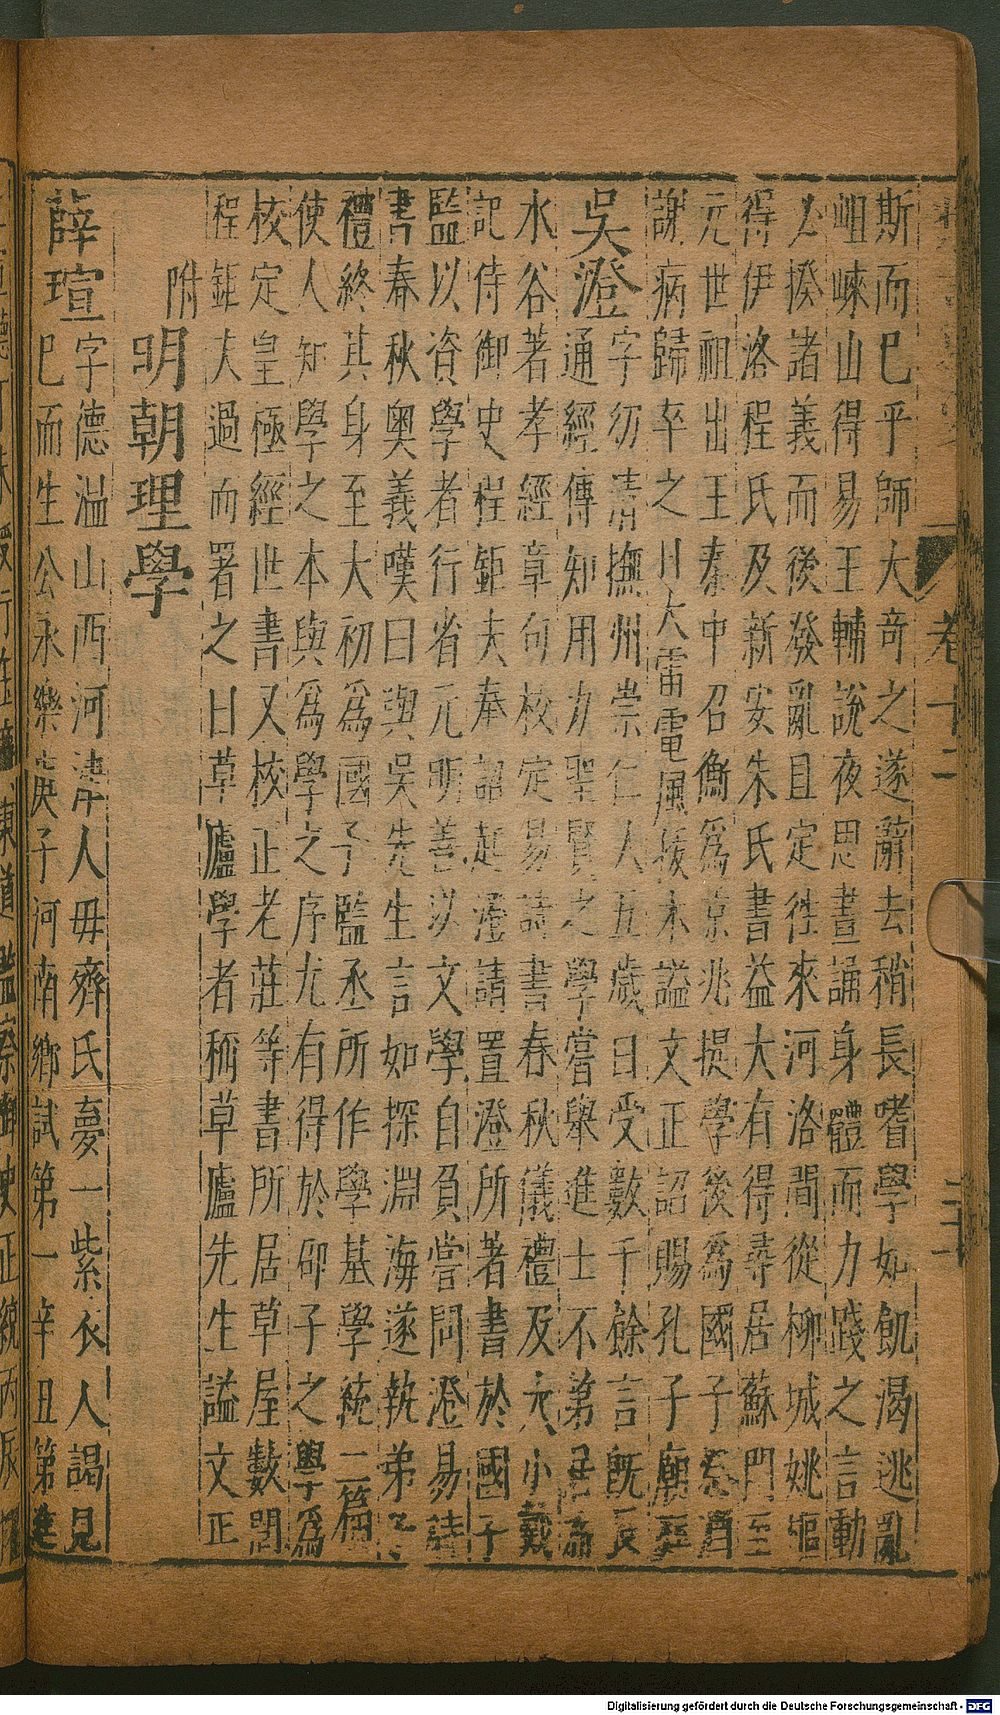 斯而已乎師大奇之遂辭去稍長嗜學如飢渴逃亂
岨崍山得易王輔說夜思晝誦身體而力踐之言動
必揆諸義而後發亂且定往來河洛間從柳城姚樞
得伊洛程氏及新安朱氏書益大有得尋居蘇門至
元世祖出王秦中召衡爲京兆提學後爲國子祭酒
謝病歸卒之日大雷電風拔木謚文正詔賜孔子廟
吳澄字幼清撫州崇仁人五歲日受數千餘言既長
通經傳知用力聖賢之學嘗舉進士不第
水谷著孝經章句校定易詩書春秋儀禮及大小戴
記侍御史程鉅夫奉詔起澄請置澄所著書於國子
監以資學者行省元明善以文學自負嘗問澄易詩
書春秋奥義嘆曰與吳先生言如探淵海遂執弟子
禮終其身至大初爲國子監丞所作學基學統二篇
使人知學之本與爲學之序尤有得於邵子之學爲
校定皇極經世書又校正老莊等書所居草屋數間
程鉅夫過而署之曰草廬學者稱草廬先生謚文正
附
明朝理學
薛瑄字德溫山西河津人母齊氏夢一紫衣人謁見
已而生公永樂庚子河南鄉試第一辛丑第進
卷十二
Digitalisierung gefördert durch die Deutsche Forschungsgemeinschaft - DFG